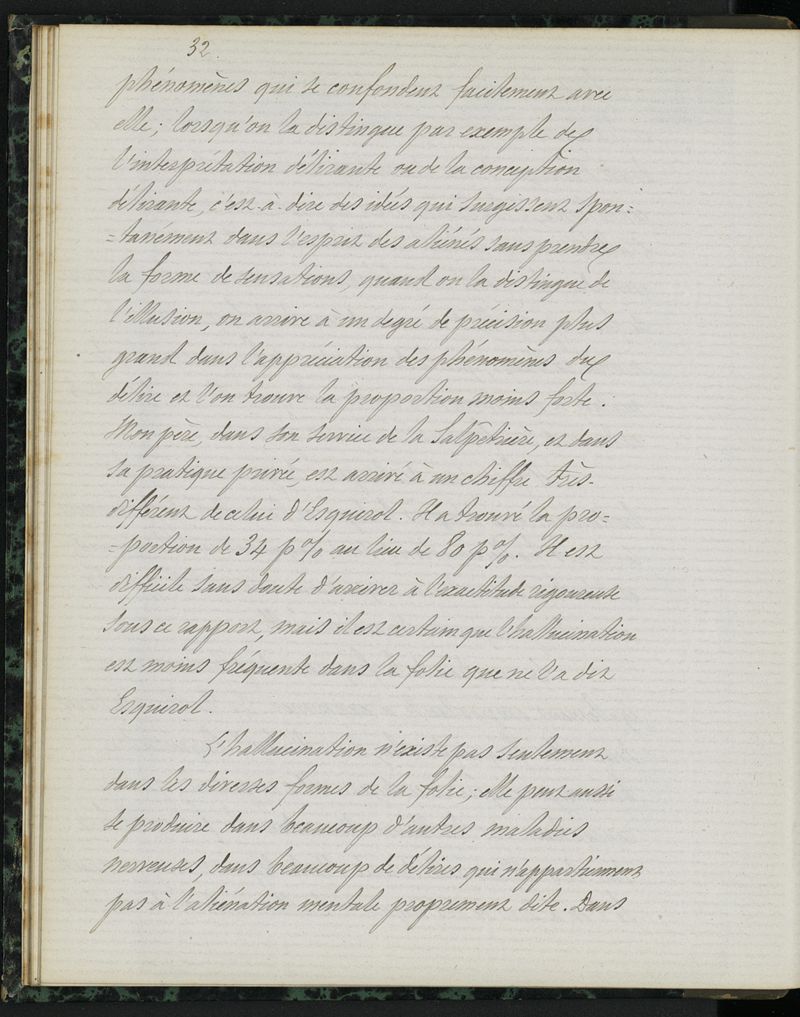 32.
phénomènes qui se confondent facilement avec
elle ; lorsqu'on la distingue par exemple de
l'interprétation délirante ou de la conception
délirante, c'est-à-dire des idées qui surgissent spon=
=tanément dans l'esprit des aliénés sans prendre
la forme de sensations, quand on la distingue de
l'illusion, on arrive à un degré de précision plus
grand dans l'appréciation des phénomènes du
délire et l'on trouve la proportion moins forte.
Mon père, dans son service de la Salpêtrière, et dans
sa pratique privée, est arrivé à un chiffre très-
différent de celui d'Esquirol. Il a trouvé la pro=
=portion de 34 p% au lieu de 80 p%. Il est
difficile sans doute d'arriver à l'exactitude rigoureuse
sous ce rapport, mais il est certain que l'hallucination
est moins fréquente dans la folie que ne l'a dit
Esquirol.
L'hallucination n'existe pas seulement
dans les diverses formes de la folie ; elle peut aussi
se produire dans beaucoup d'autres maladies
nerveuses, dans beaucoup de délires qui n'appartiennent
pas à l'aliénation mentale proprement dite. Dans